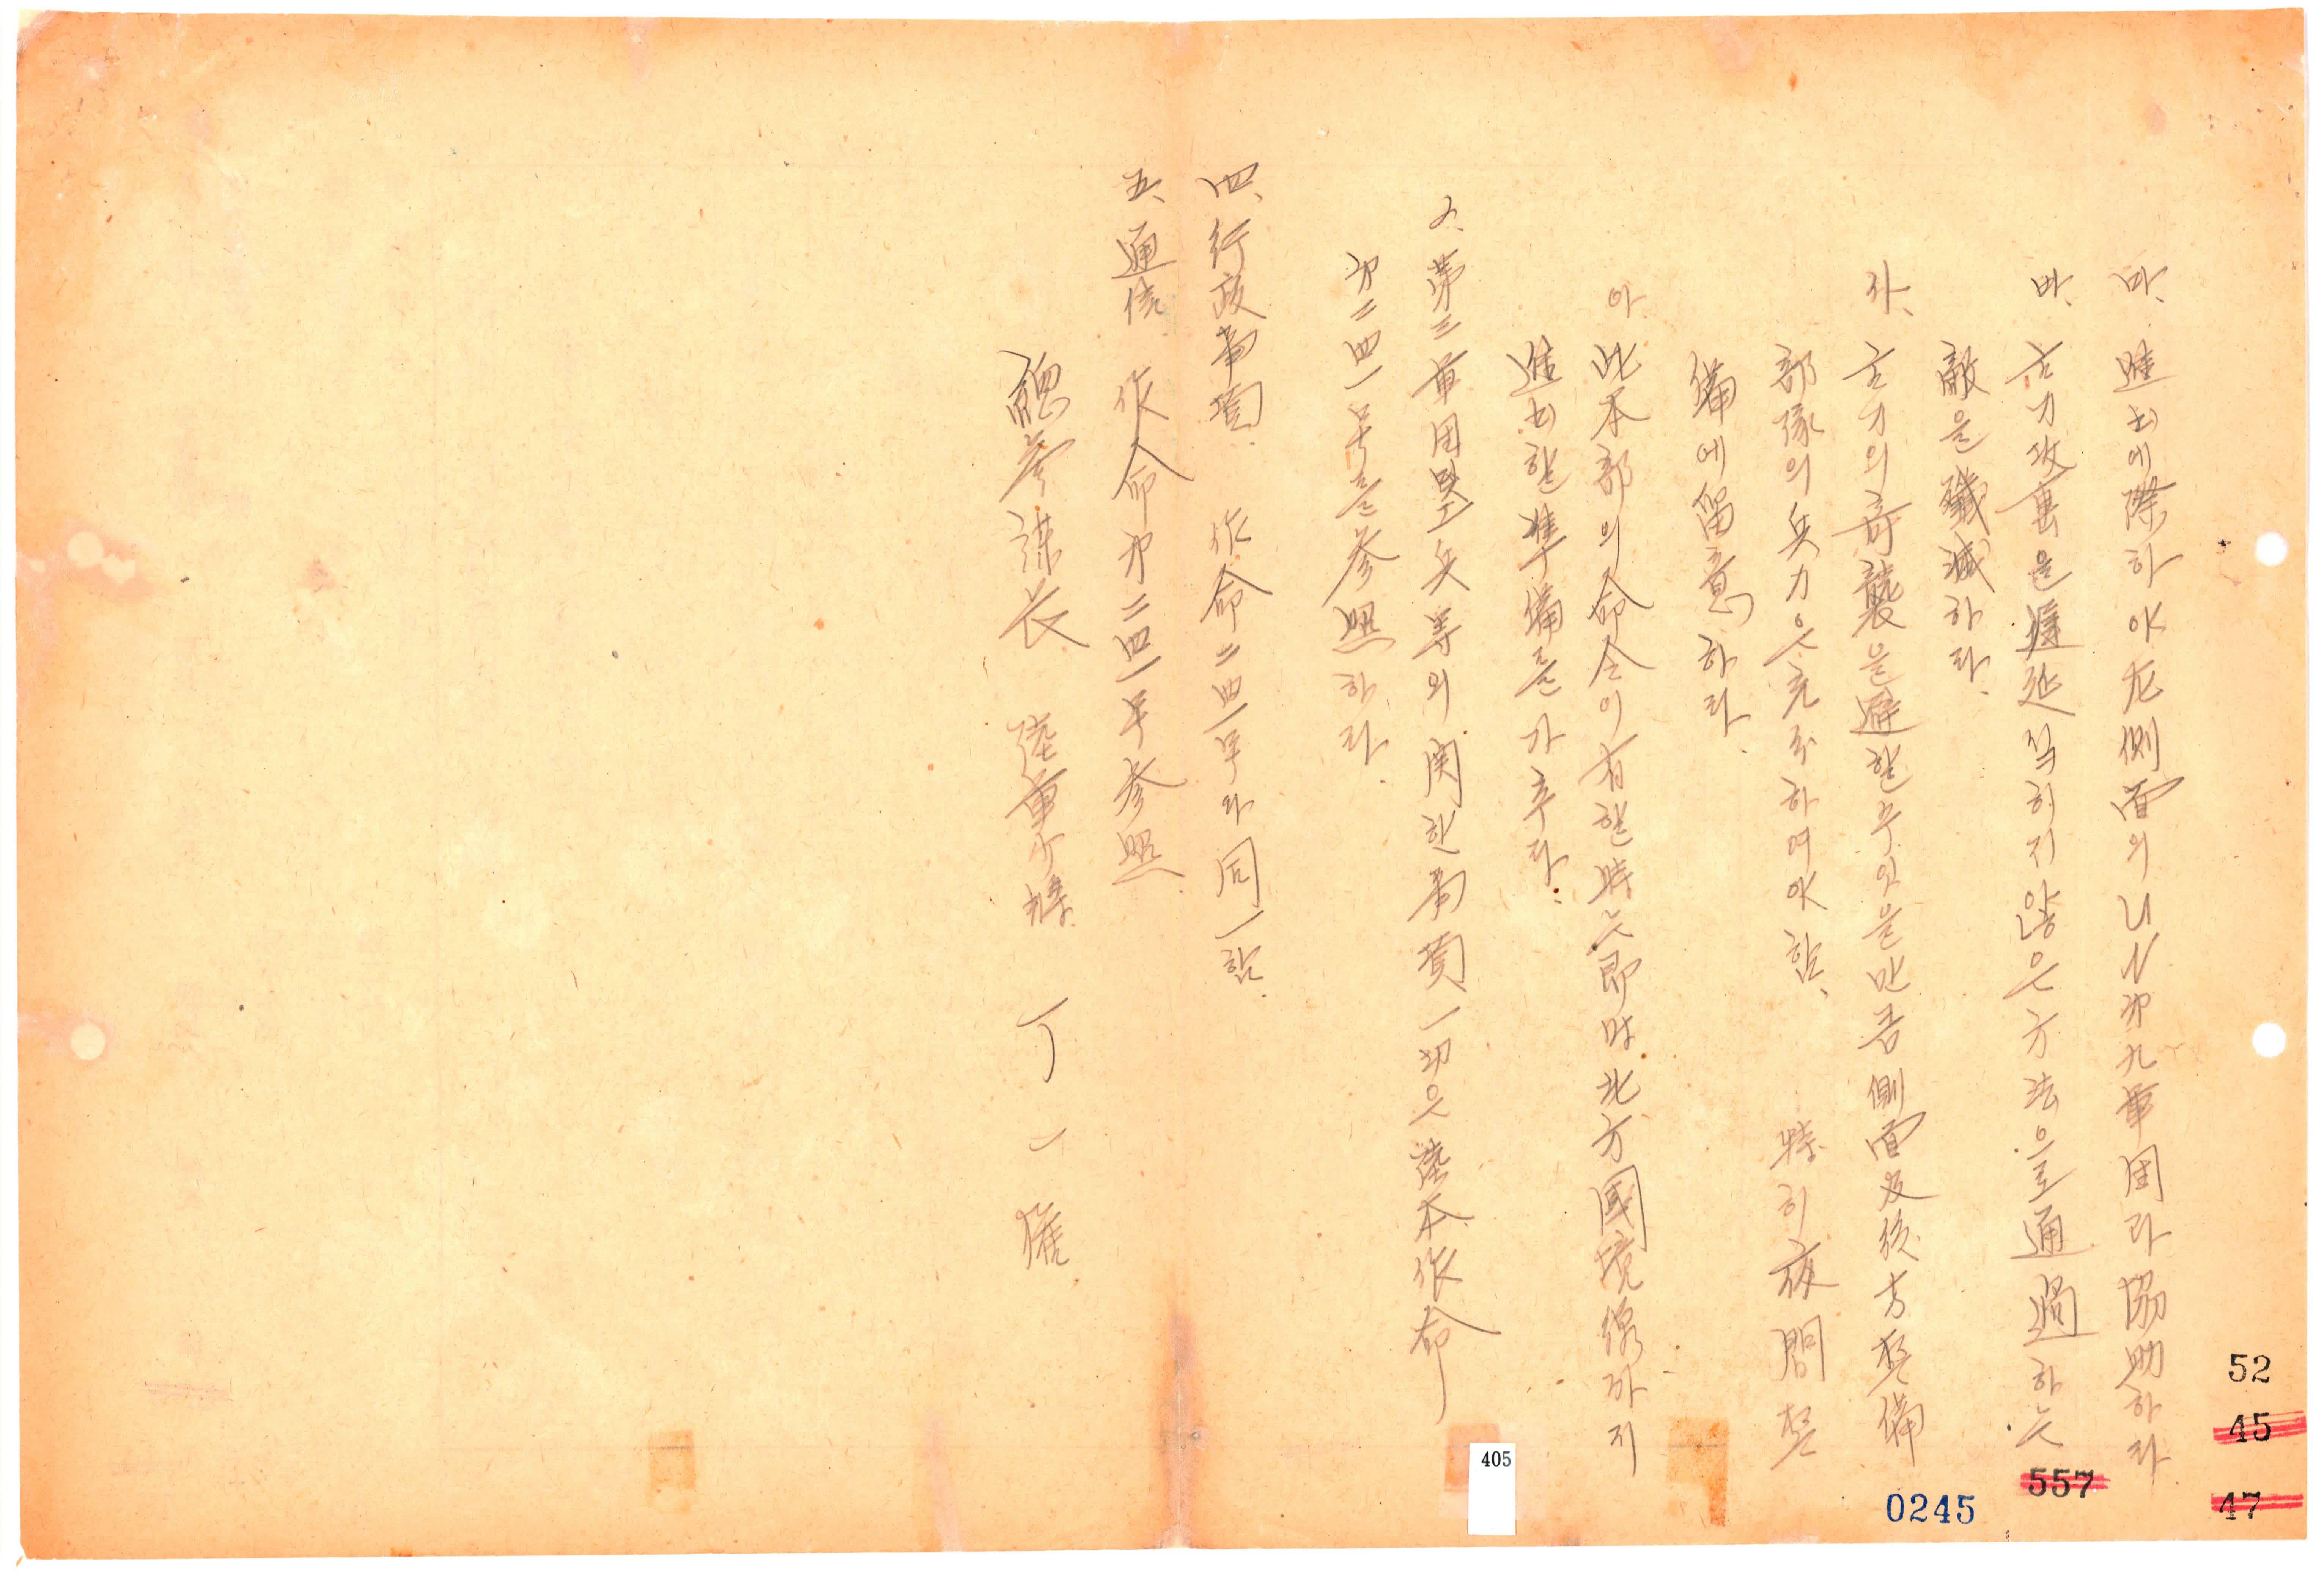 마、進出에 際하야 左側面의 UN 第九軍團과 協助하라
바、吾가 攻擊을 遲延식히지 않은 方法으로 通過하는
敵을 殲滅하라.
사、吾가의 奇襲을 避할 수 잇을만큼 側面及後方警備
部隊의 兵力은 充分하여야 함、 特히 夜間警
備에 留意하라.
아、此本部의 命令이 有할 時는 即時 北方國境線까지
進出할 準備를 가추라.
第三軍團 工兵 等의 関한 事項 一切은 陸本作命
第二四一号를 参照하라.
四、行政事項 作命 二四一号와 同一함.
五、通信 作命 第二四一号 参照
總参謀長 陸軍少將 丁一權
52
45
47
557
0245
405